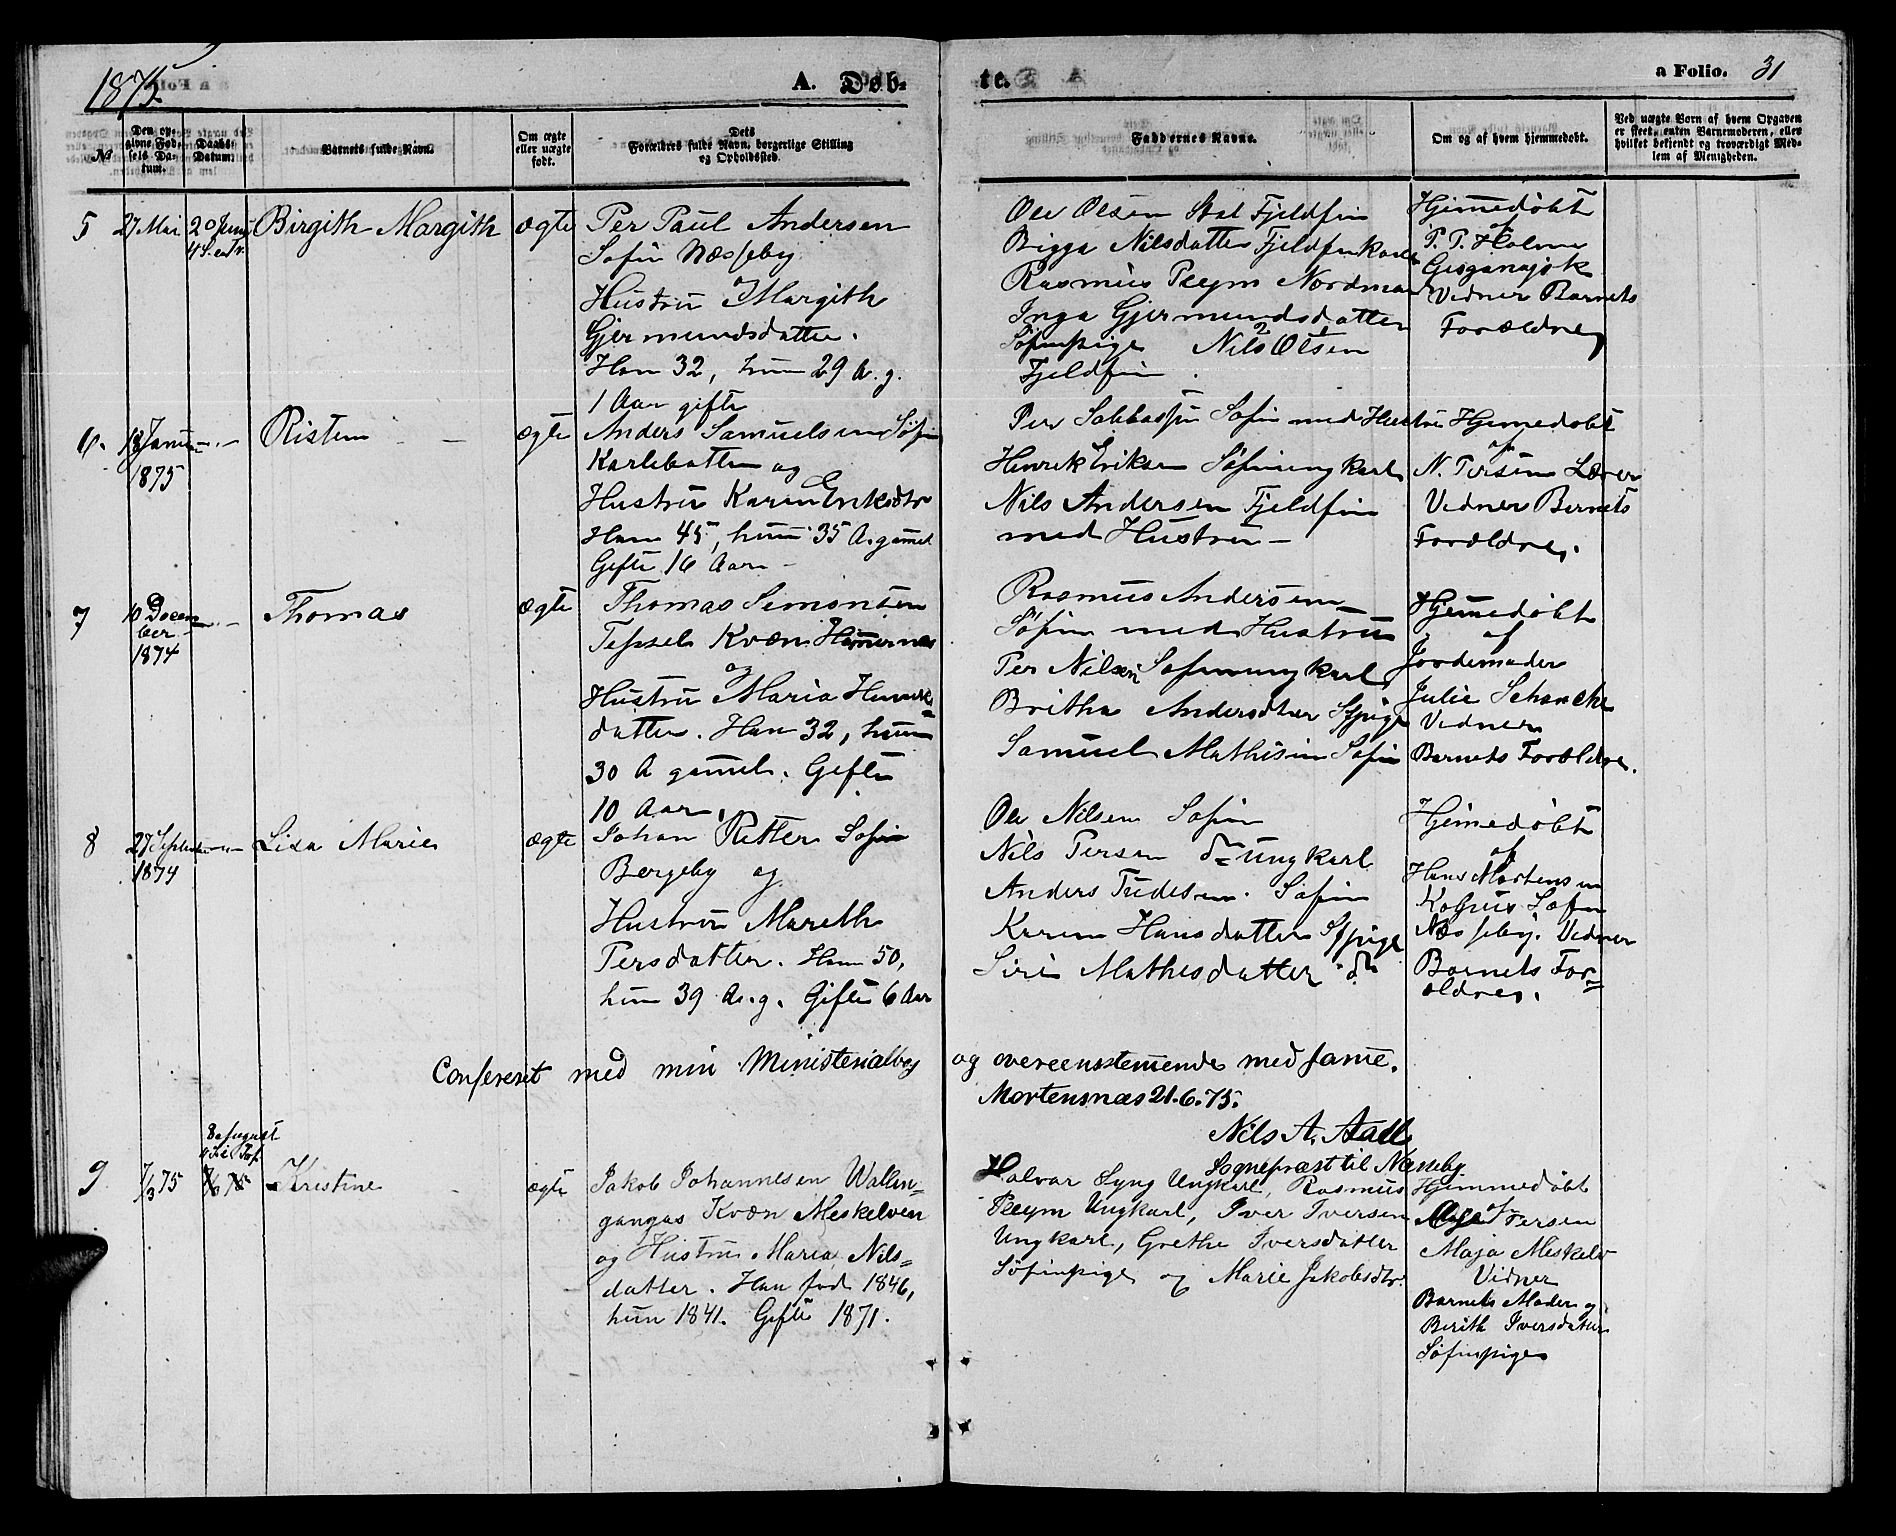 1875.
A. Døb-
te.
a Folio. 31
No
Den op-
givne Fød-
sels Da-
tum.
Daabs-
Datum.
Barnets fulde Navn.
Om ægte
eller uægte
født.
Dets
Forældres fulde Navn, borgerlige Stilling
og Opholdssted.
Faddernes Navne.
Om og af hvem hjemmedøbt.
Ved uægte Børn af hvem Opgaven
er skeet, enten Barnemoderen, eller
hvilket bekjendt og troværdigt Med-
lem af Menigheden.
5 27 Mai 20 Juni
4 S. e Tr.
Birgith Margith
ægte
Per Paul Andersen
Søfin Næsseby
Hustru Margith
Gjermundsdatter.
Han 32, hun 29 A. g.
1 Aar gifte
Ole Olsen Stal Fjeldfin
Bigga Nilsdatter Fjeldfinkone
Rasmus Pleym Nordmand
Inga Gjermundsdatter
Søfinpige Nils Olsen
Fjeldfin.
Hjemmedøbt
af
P. P. Holme
Vidner Barnets
Forældre
6. 18 Januar -"-
1875
Risten
ægte
Anders Samuelsen Søfin
Karlebotten og
Hustru Karen Eriksdtr
Han 45, hun 35 A. gammel
Gifte 16 Aar
Per Sabbasen Søfin med Hustru
Henrik Eriksen Søfinungkarl
Nils Andersen Fjeldfin
med Hustru
Hjemmedøbt
af
N. Persen Lærer
Vidner Barnets
Forældre.
7 10 Decem -"-
ber
1874
Thomas
ægte
Thomas Simonsen
Kvæn Hammernæs
og
Hustru Maria Henrik=
datter. Han 32, hun
30 A gammel. Gifte
10 Aar.
Rasmus Andersen
Søfin med Hustru
Per Nilsen Søfinungkarl
Britha Andersdtter Sfpige
Samuel Mathisen Søfin
Hjemmedøbt
af
Jordemoder
Julie Schanche
Vidner
Barnets Forældre.
8 27 September -"-
1874
Lisa Marie
ægte
Johan Ritter Søfin
Bergeby og
Hustru Mareth
Persdatter. Han 50,
hun 39 A. g. Gifte 6 Aar
Ole Nilsen Søfin
Nils Persen do Ungkarl
Anders Tudesen. Søfin
Karen Hansdatter Sfpige
Siri Mathisdatter do
Hjemmedøbt
af
Hans Mortensen
Søfin
Næsseby. Vidner
Barnets For=
ældre.
Confereret med min Ministerialbog og overeensstemmende med samme.
Mortensnæs 21.6.75.
Nils A. Aall
Sognepræst til Næsseby.
9 7/3 75
8 August
Kristine
ægte
Jakob Johannesen Wallin=
gangas Kvæn Meskelven
og Hustru Maria Nils=
datter. Han født 1846,
hun 1841. Gifte 1871.
Halvar Lyng Ungkarl, Rasmus
Pleym Ungkarl, Iver Iversen
Ungkarl, Grethe Iversdatter
Søfinpige og Marie Jakobsdtr.
Hjemmedøbt
af Persen
Maja Meskelv
Vidner
Barnets Moder og
Berith Iversdatter
Søfinpige